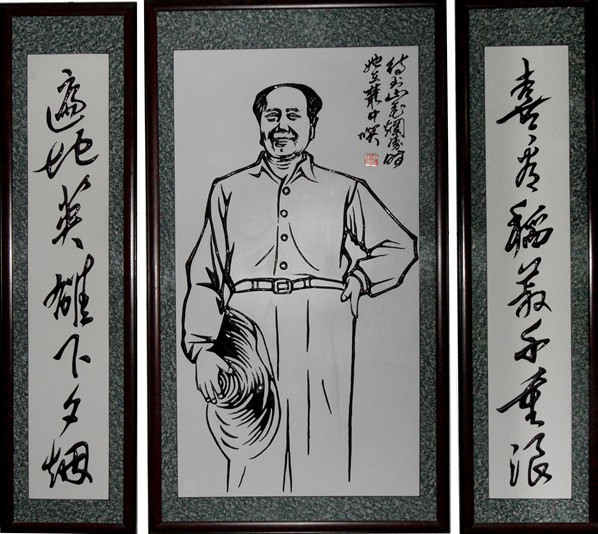 喜看稻菽千重浪
待到山花爛漫時
她在叢中笑
遍地英雄下夕烟